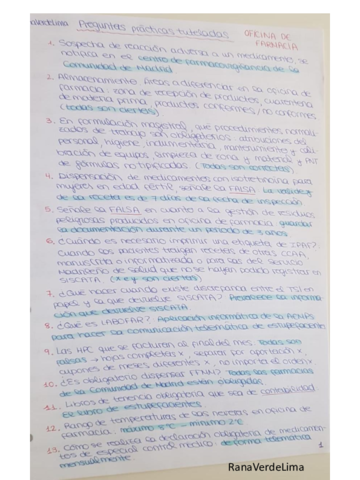 RanaVerdeLima Preguntas prácticas tuteladas OFICINA DE
FARMACIA
1. Sospecha de reacción adversa a un medicamento, se
notifica en el centro de farmacovigilancia de la
Comunidad de Madrid
2. Almacenamiento. Áreas a diferenciar en la oficina de
farmacia: zona de recepción de productos, cuarentena
de materia prima, productos conformes / no conformes
(todas son ciertas)
3. En formulación magistral, qué procedimientos normali
zados de trabajo son obligatorios: atribuciones del
personal, higiene, indumentaria, mantenimiento y cali
bración de equipos, limpieza de zona y material y PNT
de fórmulas no tipificadas (todas son correctas)
4. Dispensación de medicamentos con isotretinoina para
mujeres en edad fértil, señale la FALSA. La validez
de la receta es de 7 días de la fecha de
5. Señale la FALSA en cuanto a la gestión de residuos
peligrosos producidos en oficina de farmacia: guardar
la documentación durante un periodo de 3 años
6. ¿Cuándo es necesario imprimir una etiqueta de
Cuando los pacientes traigan recetas de otras CCAA,
o informatizada o para las del Servicio
Madrileño de Salud que no se hayan podido registrar en
SISCATA. (x e y son ciertas)
7. ¿Qué hacer cuando existe discrepancia entre el TSI en
papel y la que devuelve SISCATA? Prevalece la informa
ción que devuelve SISCATA
8. ¿Qué es LABOFAR? Aplicación informática de la
para hacer la comunicación telemática de estupefacientes
9. Las que se facturan al final del mes. Todas son
falsas → hojas completas x, separar por aportación x
cupones de meses diferentes x, no importa el orden x
10. ¿Es obligatorio dispensar Todas las farmacias
de la Comunidad de Madrid están obligadas
11. Libros de tenencia obligatoria que sea de contabilidad
El libro de estupefacientes
12. Rango de temperaturas de las neveras en oficina de
farmacia. máximo 8ºC - mínimo 2ºC
13. Cómo se realiza la declaración obligatoria de medicamen-
tos de especial control médico. de forma telemática
mensualmente
1
RanaVerdeLima